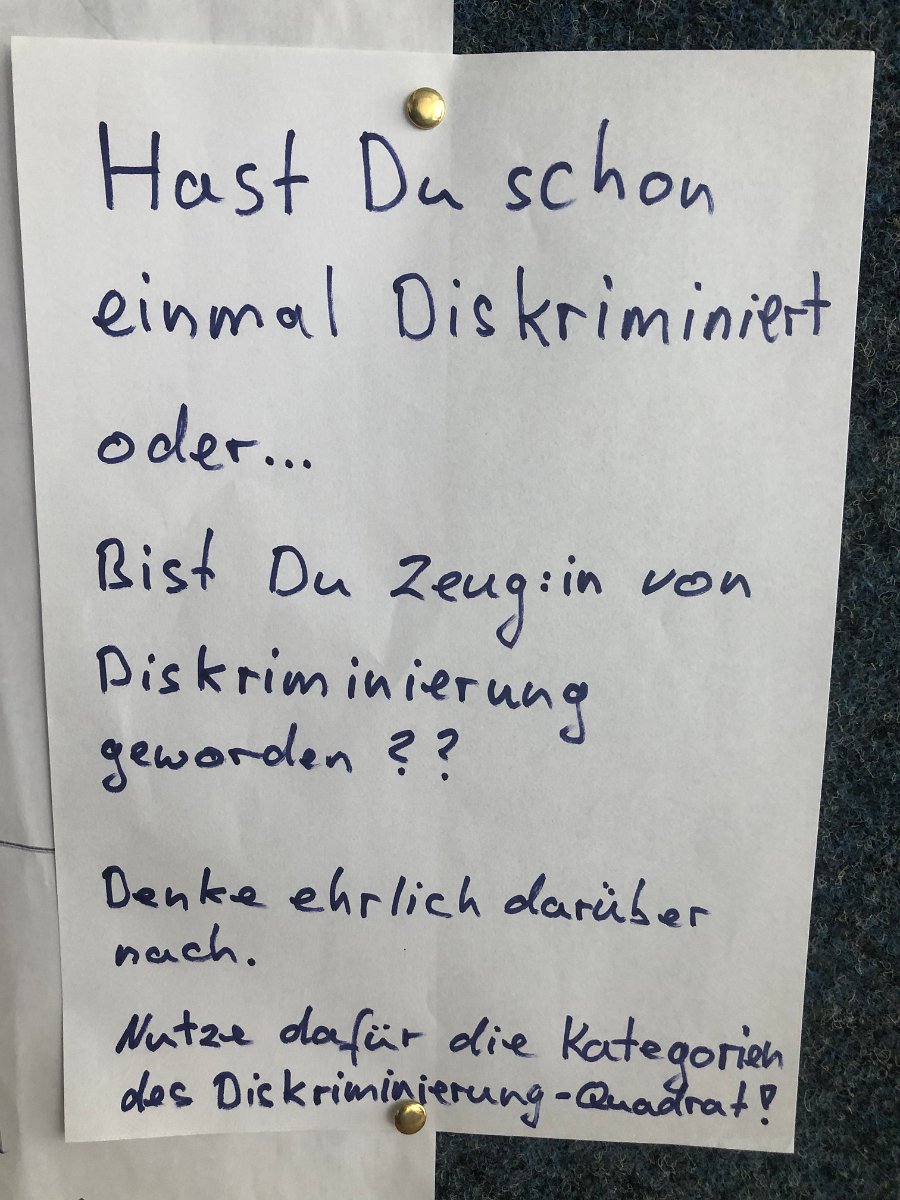 Hast Du schon
einmal Diskriminiert
oder...
Bist Du Zeug:in von
Diskriminierung
geworden ??
Denke ehrlich darüber
nach.
Nutze dafür die Kategorien
des Diskriminierung-Quadrat!